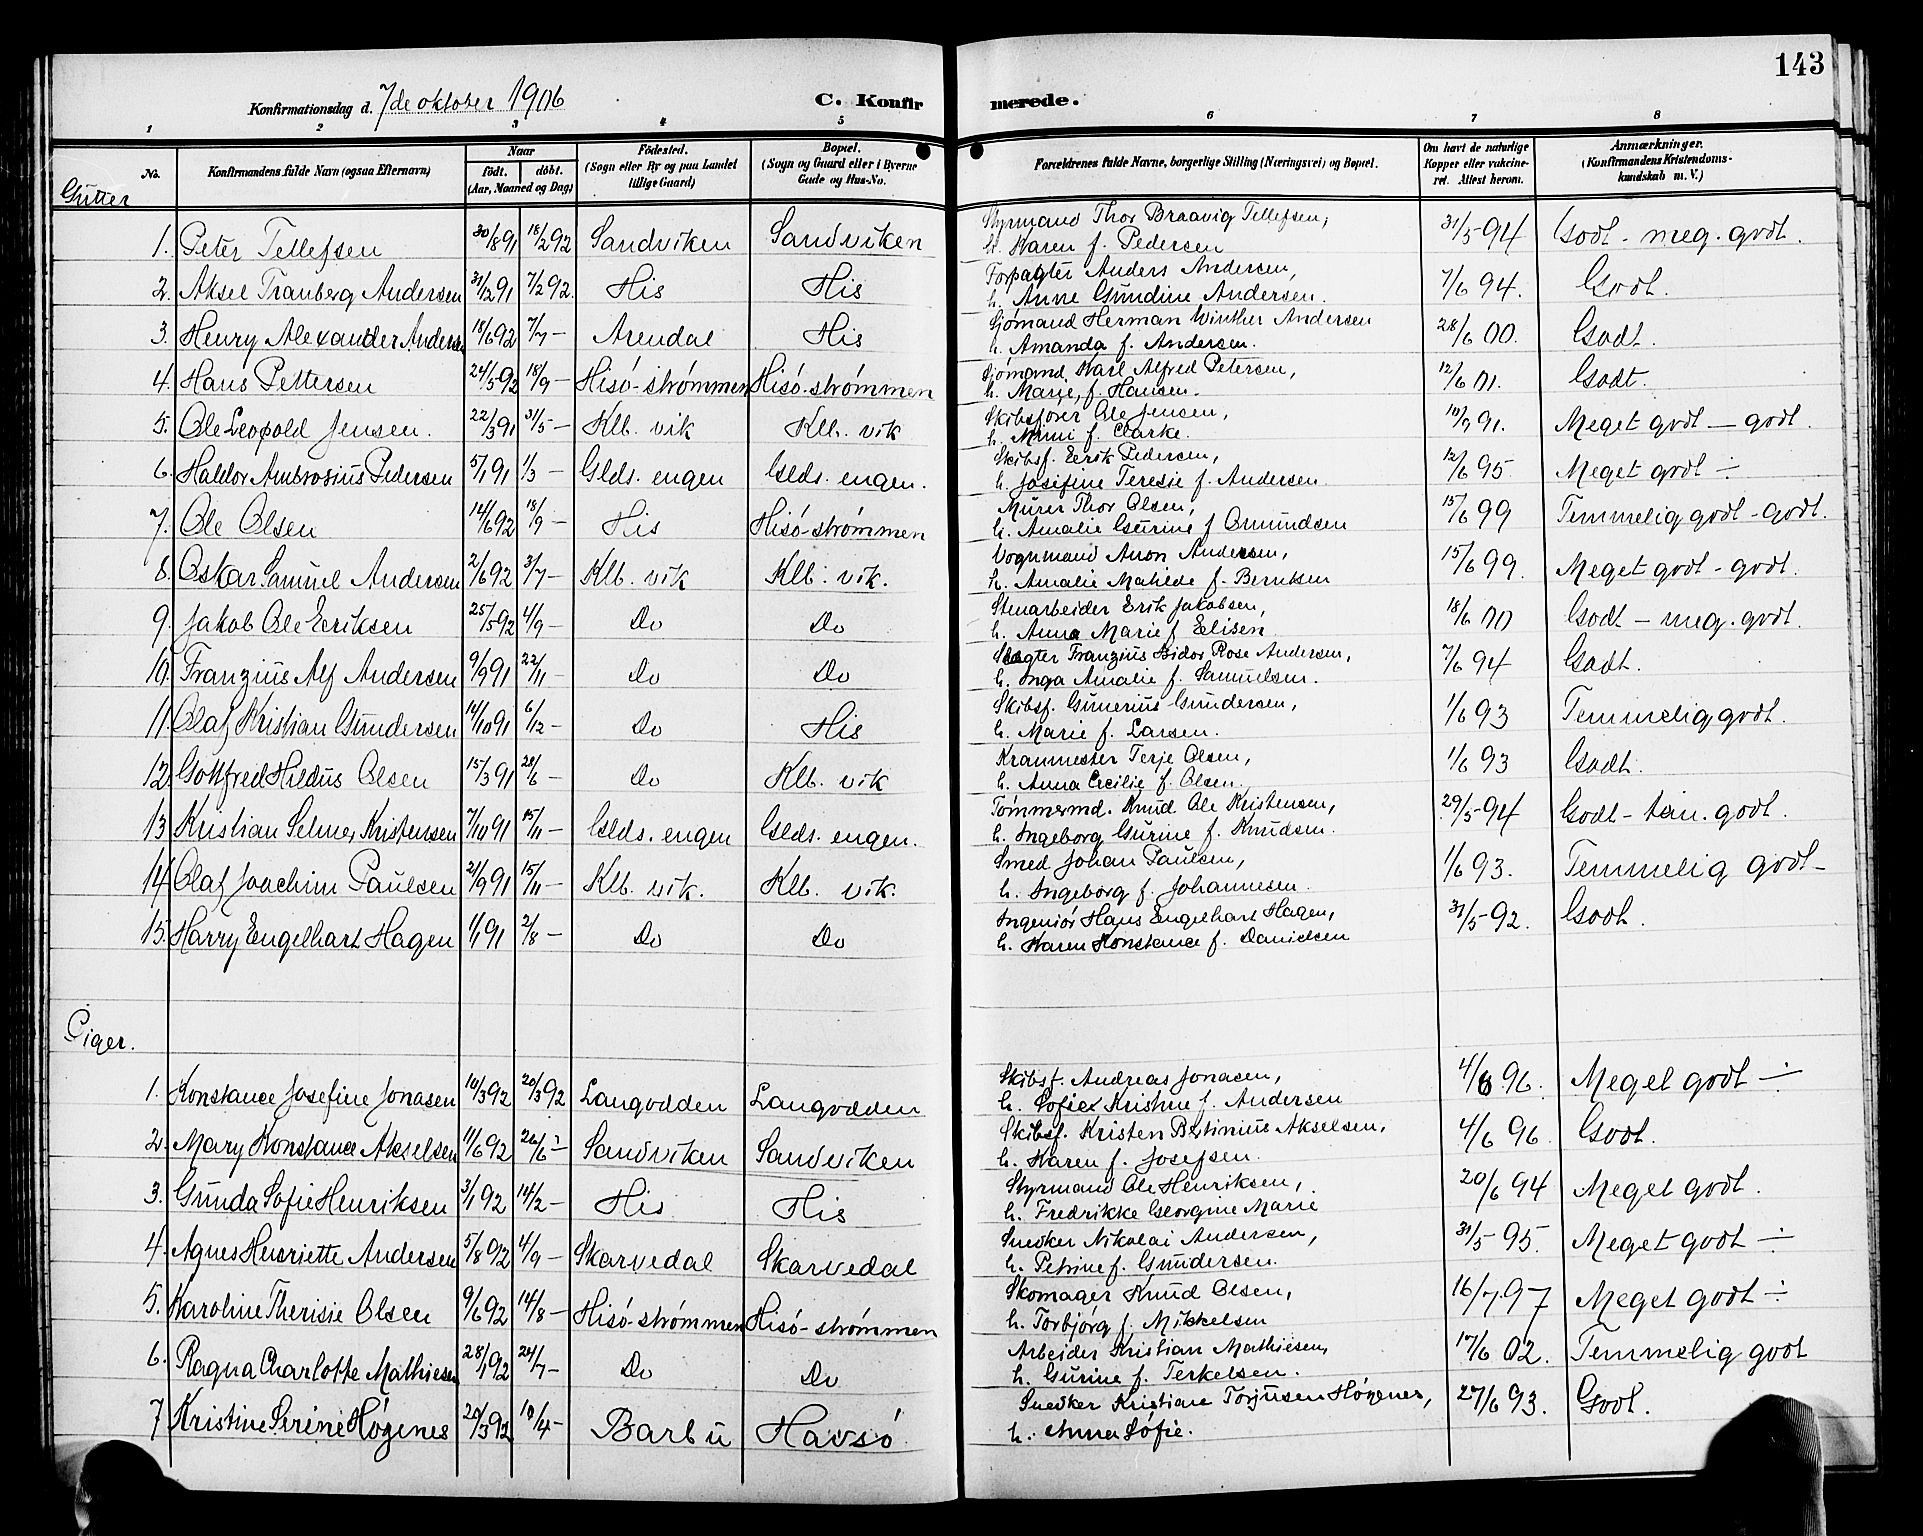 143
Konfirmationsdag d. 7de oktober 1906 C. Konfirmerede.
1 2 3 4 5 6 7 8
No. Konfirmandens fulde Navn (ogsaa Efternavn) Naar födt. döbt. (Aar, Maaned og Dag) Födested. (Sogn eller By og paa Landet tillige Gaard) Bopæl. (Sogn og Gaard eller i Byerne Gade og Hus-No. Forældrenes fulde Navne, borgerlige Stilling (Næringsvei) og Bopæl. Om havt de naturlige Kopper eller vaccineret. Attest herom. Anmærkninger. (Konfirmandens Kristendomskundskab m. V.)
Gutter
1. Peter Tellefsen 30/8 91 18/2 92 Sandviken Sandviken Styrmand Thor Braavig Tellefsen, 31/5 - 94 Godt - meg. godt.
h. Karen f. Pedersen
2. Aksel Tranberg Andersen 31/12 91 7/2 92. His His Forpagter Anders Andersen, 7/6 94. Godt.
h. Anne Gundine Andersen.
3. Henry Alexander Andersen 18/6 92 7/7 - Arendal His Sjømand Herman Winther Andersen 28/6 00. Godt.
h. Amanda f. Andersen.
4. Hans Pettersen 24/5 92 18/9 - Hisö-strømmen Hisö-strømmen Sjømand Karl Alfred Petersen, 12/6 01. Godt.
h. Marie, f. Hansen.
5. Ole Leopold Jensen. 22/3 91 31/5 - Klb. vik Klb. vik Skibsfører Ole Jensen, 10/9 91. Meget godt - godt.
h. Mimi f. Clarke.
6. Haldor Ambrosius Pedersen 5/1 91 1/3 - Glds. engen Glds. engen. Skibsf. Eerik Pedersen, 12/6 95 Meget godt ÷
h. Josefine Teresie f. Andersen
7. Ole Olsen 14/6 92 18/9 - His Hisö-strømmen Murer Thor Olsen, 15/6 99 Temmelig godt - godt.
h. Amalie Gurine f Osmundsen
8. Oskar Samuel Andersen 2/6 92 3/7 - Klb. vik Klb. vik. Vognmand Aron Andersen, 15/6 99. Meget godt - godt.
h. Amalie Matilde f. Berntsen
9. Jakob Ole Eeriksen 25/5 92 4/9 - Do Do Stenarbeider Erik Jakobsen, 18/6 00 Godt - meg. godt.
h. Anna Marie f Eelisen
10. Franzius Alf Andersen 9/9 91 22/11 - Do Do Slagter Franzius Isidor Rose Andersen, 7/6 94 Godt.
h. Inga Amalie f. Samuelsen.
11. Olaf Kristian Gundersen 14/10 91 6/12 - Do His Skibsf. Gunerius Gundersen, 1/6 93 Temmelig godt.
h. Marie f. Larsen.
12. Gottfred Hildus Olsen 15/3 91 28/6 - Do Klb. vik Kranmester Terje Olsen, 1/6 93 Godt.
h. Anna Cecilie f. Olsen.
13 Kristian Selmer Kristensen 7/10 91 15/11 - Glds. engen Glds. engen. Tømmermd. Knud Ole Kristensen, 29/5 - 94 Godt - tem. godt.
h. Ingeborg Gurine f. Knudsen.
14. Olaf Joachim Paulsen 21/9 91 15/11 - Klb. vik. Klb. vik. Smed Johan Paulsen, 1/6 93. Temmelig godt -
h. Ingeborg f. Johannesen.
15. Harry Engelhart Hagen 1/1 91 2/8 - Do Do Ingeniør Hans Engelhart Hagen, 31/5 - 92. Godt.
h. Karen Konstance f. Danielsen
Piger.
1. Konstance Josefine Jonasen 10/3 92 20/3 92 Langodden Langodden Skibsf. Andreas Jonasen, 4/6 96. Meget godt ÷
h. Sofie Kristine f. Andersen
2. Mary Konstance Akselsen 11/6 92 26/6 - Sandviken Sandviken Skibsf. Kristen Bertinius Akselsen, 4/6 96. Godt.
h. Karen f. Josefsen.
3. Gunda Sofie Henriksen 3/1 92 14/2 - His His Styrmand Ole Henriksen, 20/6 94 Meget godt.
h. Fredrikke Georgine Marie
4. Agnes Henriette Andersen 5/8 92 4/9 - Skarvedal Skarvedal Snedker Nikolai Andersen, 31/5 95. Meget godt ÷
h. Petrine f. Gundersen.
5. Karoline Therisie Olsen 9/6 92 14/8 - Hisö-strømmen Hisö-strømmen Skomager Knud Olsen, 16/7 97 Meget godt ÷
h. Torbjørg f. Mikkelsen
6. Ragna Charlotte Mathiesen 28/1 92 24/7 - Do Do Arbeider Kristian Mathiesen, 17/6 02. Temmelig godt
h. Gurine f. Terkelsen.
7 Kristine Serine Høgenes 20/3 92 10/4 - Barbu Havsö Snedker Kristian Torjusen Høgenes, 27/6 93. Godt.
h. Anna Sofie.